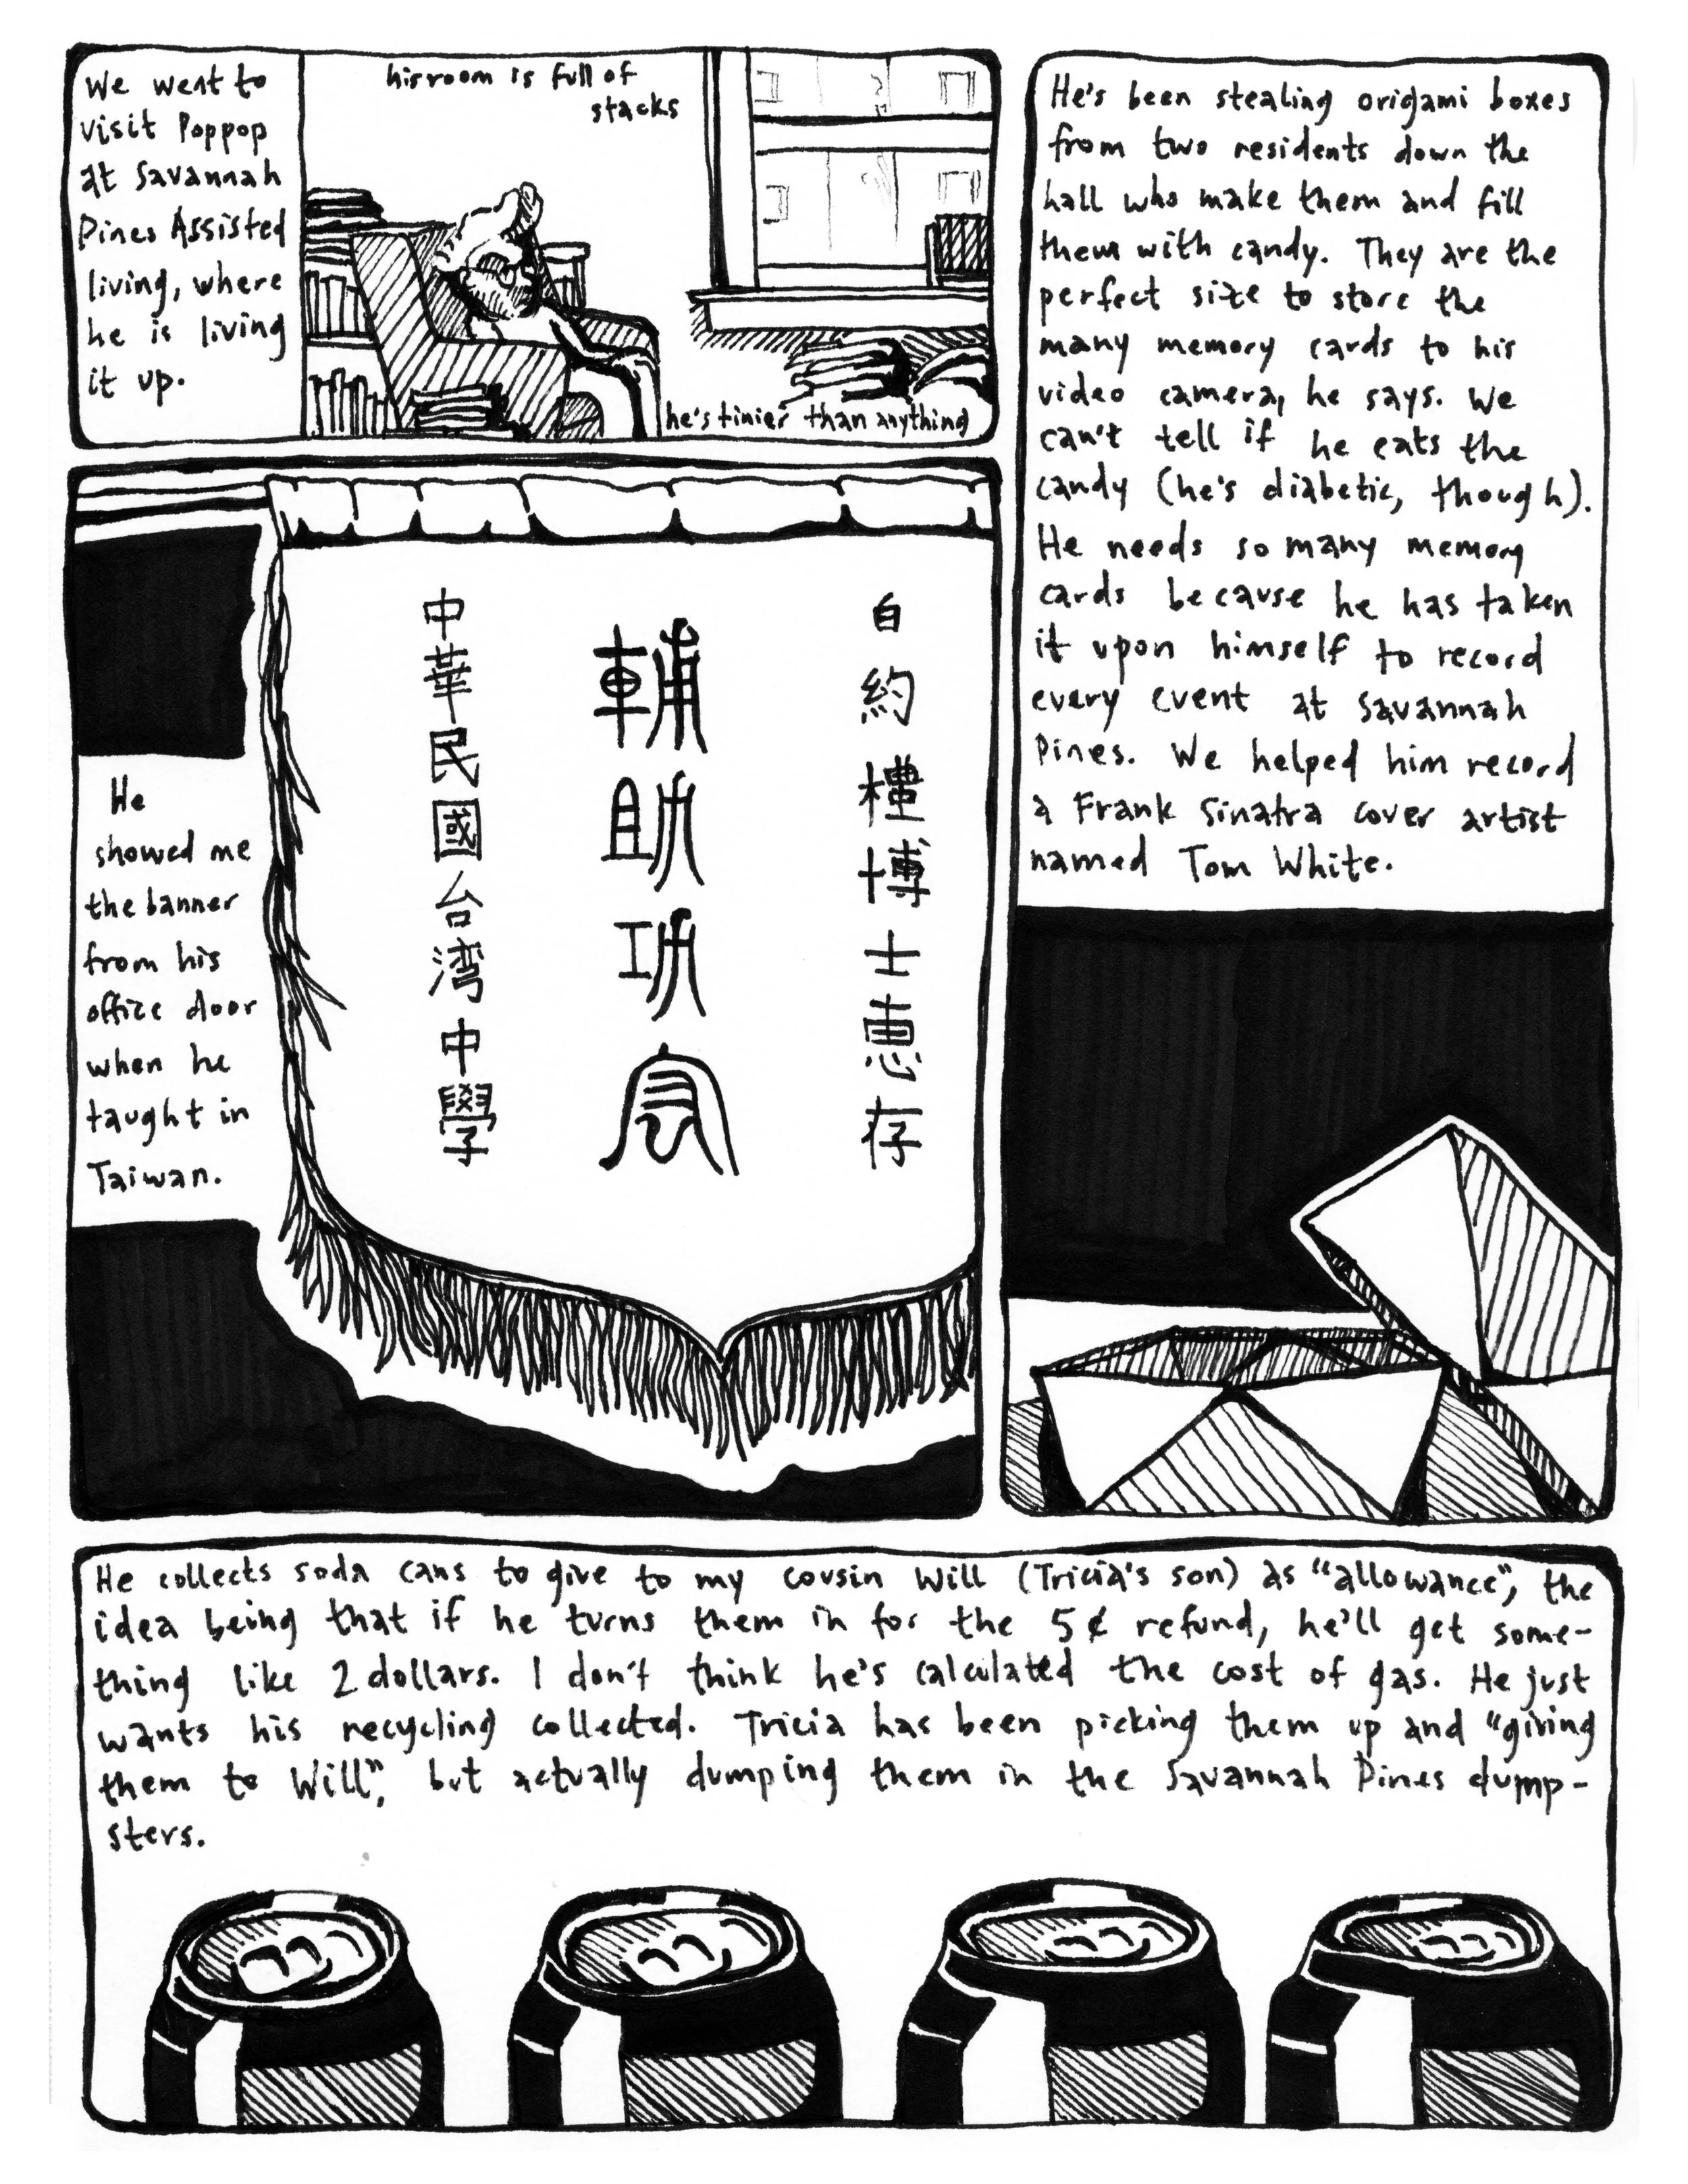 We went to
visit Poppop
at Savannah
Pines Assisted
living, where
he is living
it up.
his room is full of
stacks
he's tinier than anything
He
showed me
the banner
from his
office door
when he
taught in
Taiwan.
自約樓博士恵存
輔助功
中華民國台湾中學
He's been stealing origami boxes
from two residents down the
hall who make them and fill
them with candy. They are the
perfect size to store the
many memory cards to his
video camera, he says. We
can't tell if he eats the
candy (he's diabetic, though).
He needs so many memory
cards because he has taken
it upon himself to record
every event at Savannah
Pines. We helped him record
a Frank Sinatra cover artist
named Tom White.
He collects soda cans to give to my cousin Will (Tricia's son) as "allowance", the
idea being that if he turns them in for the 5¢ refund, he'll get some-
thing like 2 dollars. I don't think he's calculated the cost of gas. He just
wants his recycling collected. Tricia has been picking them up and "giving
them to Will", but actually dumping them in the Savannah Pines dump-
sters.